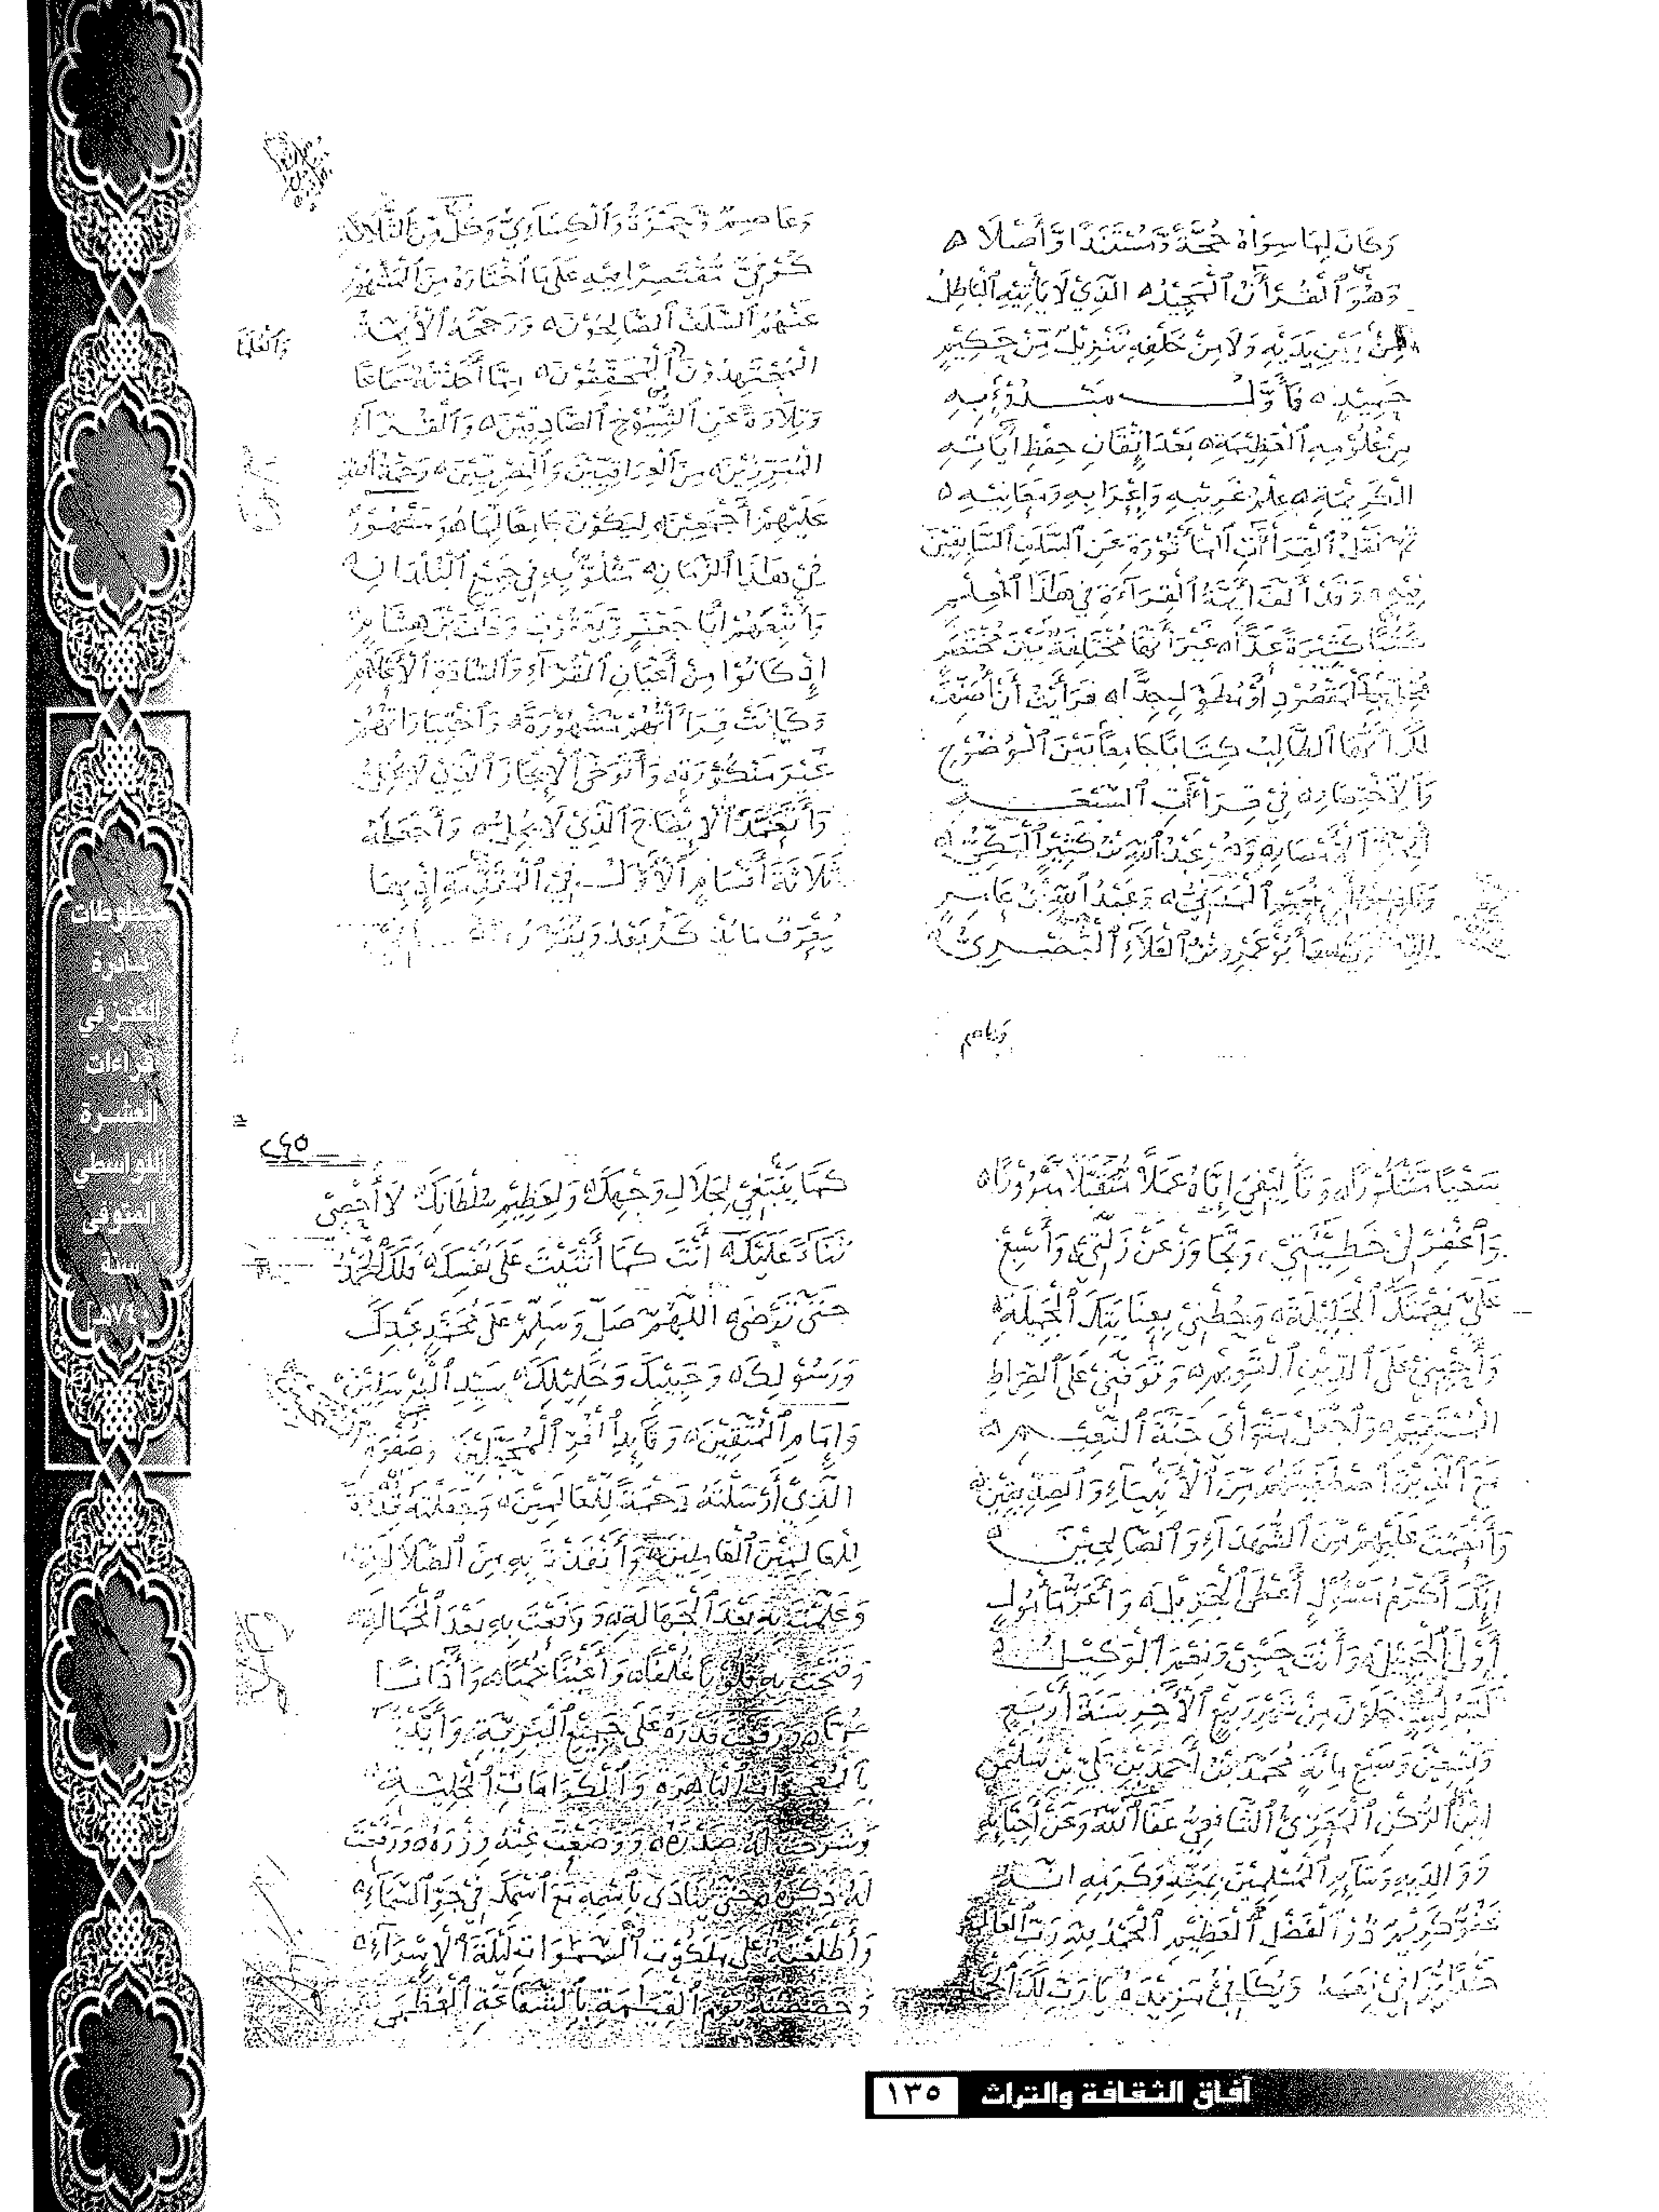 وَكَانَ لِمَا سِوَاهُ حُجَّةً وَّمُسْتَنَدًا وَّأَصْلًا ه
وَهُوَ الْقُرْآنُ الْمَجِيْدُ ه الَّذِيْ لَا يَأْتِيْهِ الْبَاطِلُ
مِنْ بَيْنِ يَدَيْهِ وَلَا مِنْ خَلْفِهِ تَنْزِيْلٌ مِّنْ حَكِيْمٍ
حَمِيْدٍ ه فَأَوَّلُ مَبْدُوْءٍ بِهِ
مِنْ عُلُوْمِهِ الْعَظِيْمَةِ ه بَعْدَ إِتْقَانِ حِفْظِ آيَاتِهِ
الْكَرِيْمَةِ ه عِلْمُ غَرِيْبِهِ وَإِعْرَابِهِ وَمَعَانِيْهِ ه
ثُمَّ نَقْلُ الْقِرَاءَاتِ الْمَأْثُوْرَةِ عَنِ السَّلَفِ السَّابِقِيْنَ
فِيْهِ ه وَقَدْ أَلَّفَ أَئِمَّةُ الْقِرَاءَةِ فِي هٰذَا الْجِنْسِ
كُتُبًا كَثِيْرَةً عَدًّا ه غَيْرَ أَنَّهَا مُخْتَلِفَةٌ بَيْنَ مُخْتَصَرٍ
أَوْ مُطَوَّلٍ جِدًّا ه فَرَأَيْتُ أَنْ أُصَنِّفَ
لَكَ أَيُّهَا الطَّالِبُ كِتَابًا جَامِعًا بَيْنَ الْوُضُوْحِ
وَالِاخْتِصَارِ ه فِيْ قِرَاءَاتِ السَّبْعَةِ
أَئِمَّةِ الْأَمْصَارِ ه وَهُمْ عَبْدُ اللهِ بْنُ كَثِيْرٍ الْمَكِّيُّ ه
وَنَافِعُ بْنُ أَبِيْ نُعَيْمٍ الْمَدَنِيُّ ه وَعَبْدُ اللهِ بْنُ عَامِرٍ
أَبُوْ عَمْرِو بْنُ الْعَلَاءِ الْبَصْرِيُّ ه
وَعَاصِمٌ وَّحَمْزَةُ وَالْكِسَاءِيُّ وَكُلٌّ مِّنَ الثَّلَاثَةِ
كُوْفِيٌّ مُقْتَصِرًا فِيْهِ عَلَى مَا اخْتَارَهُ مِنَ الْمَشْهُوْرِ
عَنْهُمُ السَّلَفُ الصَّالِحُوْنَ ه وَرَجَّحَهُ الْأَئِمَّةُ
وَالْعُلَمَاءُ
الْمُجْتَهِدُوْنَ الْمُحَقِّقُوْنَ ه مِمَّا أَخَذْتُهُ سَمَاعًا
وَتِلَاوَةً عَنِ الشُّيُوْخِ الصَّادِقِيْنَ ه وَالْقُرَّاءِ
الْمُبَرِّزِيْنَ ه مِنَ الْعِرَاقِيِّيْنَ وَالْمِصْرِيِّيْنَ ه رَحْمَةُ اللهِ
عَلَيْهِمْ أَجْمَعِيْنَ ه لِيَكُوْنَ جَامِعًا لِمَا هُوَ مَشْهُوْرٌ
فِيْ هٰذَا الزَّمَانِ ه مَتْلُوٌّ بِهِ فِي جَمِيْعِ الْبُلْدَانِ ه
وَأَتْبَعْتُهُمْ أَبَا جَعْفَرٍ وَّيَعْقُوْبَ وَخَلَفَ بْنَ هِشَامٍ
إِذْ كَانُوْا مِنْ أَعْيَانِ الْقُرَّاءِ وَالسَّادَةِ الْأَعْلَامِ
وَكَانَتْ قِرَاءَتُهُمْ مَشْهُوْرَةً ه وَاخْتِيَارَاتُهُمْ
غَيْرَ مَنْكُوْرَةٍ ه وَأَتَوَخَّى الْإِيْجَازَ الَّذِيْ لَا يُخِلُّ
وَأَتَعَمَّدُ الْإِيْضَاحَ الَّذِيْ لَا يُمِلُّ ه وَأَجْعَلُهُ
ثَلَاثَةَ أَقْسَامٍ الْأَوَّلُ فِي الْمُقَدِّمَةِ إِذْ بِهَا
يُعْرَفُ مَا يُذْكَرُ بَعْدُ
وَعَاصِم
سَعْيًا مَّشْكُوْرًا ه وَتَأْلِيْفِيْ إِيَّاهُ عَمَلًا مُّتَقَبَّلًا مَّبْرُوْرًا ه
وَاغْفِرْ لِيْ خَطِيْئَتِيْ، وَتَجَاوَزْ عَنْ زَلَّتِيْ ه وَأَسْبِغْ
عَلَيَّ نِعْمَتَكَ الْجَلِيْلَةَ ه وَحُطْنِيْ بِعِنَايَتِكَ الْجَمِيْلَةِ ه
وَأَحْيِنِيْ عَلَى الدِّيْنِ الْقَوِيْمِ ه وَتَوَفَّنِيْ عَلَى الصِّرَاطِ
الْمُسْتَقِيْمِ ه وَاجْعَلْ مَثْوَايَ جَنَّةَ النَّعِيْمِ ه
مَعَ الَّذِيْنَ اصْطَفَيْتَهُمْ مِّنَ الْأَنْبِيَاءِ وَالصِّدِّيْقِيْنَ ه
وَأَنْعَمْتَ عَلَيْهِمْ مِّنَ الشُّهَدَاءِ وَالصَّالِحِيْنَ ه
إِنَّكَ أَكْرَمُ مَسْئُوْلٍ أَعْطَى الْجَزِيْلَ ه وَأَعَزُّ مَأْمُوْلٍ
أَوْلَى الْجَمِيْلَ ه وَأَنْتَ حَسْبِيْ وَنِعْمَ الْوَكِيْلُ ه
خَلَوْنَ مِنْ شَهْرِ رَبِيْعِ الْآخِرِ سَنَةَ أَرْبَعٍ
وَسَبْعِ مِائَةٍ مُحَمَّدُ بْنُ أَحْمَدَ بْنِ عَلِيِّ بْنِ سُلَيْمٰنَ
ابْنِ الرُّكْنِ الْمَعَرِّيُّ الشَّافِعِيُّ عَفَا اللهُ عَنْهُ وَعَنْ أَحِبَّائِهِ
وَوَالِدَيْهِ وَسَايِرِ الْمُسْلِمِيْنَ بِمَنِّهِ وَكَرَمِهِ إِنَّهُ
كَرِيْمٌ ذُو الْفَضْلِ الْعَظِيْمِ الْحَمْدُ لِلّٰهِ رَبِّ الْعَالَمِيْنَ
حَمْدًا يُّوَافِيْ نِعَمَهُ وَيُكَافِئُ مَزِيْدَهُ يَا رَبِّ لَكَ الْحَمْدُ
٢٤٥
كَمَا يَنْبَغِيْ لِجَلَالِ وَجْهِكَ ه وَلِعَظِيْمِ سُلْطَانِكَ لَا أُحْصِيْ
ثَنَاءً عَلَيْكَ ه أَنْتَ كَمَا أَثْنَيْتَ عَلَى نَفْسِكَ ه فَلَكَ الْحَمْدُ
حَتَّى تَرْضَى ه اللّٰهُمَّ صَلِّ وَسَلِّمْ عَلَى مُحَمَّدٍ عَبْدِكَ
وَرَسُوْلِكَ ه وَحَبِيْبِكَ وَخَلِيْلِكَ ه سَيِّدِ الْمُرْسَلِيْنَ
وَإِمَامِ الْمُتَّقِيْنَ ه وَقَائِدِ الْغُرِّ الْمُحَجَّلِيْنَ
الَّذِيْ أَرْسَلْتَهُ رَحْمَةً لِّلْعَالَمِيْنَ ه وَجَعَلْتَهُ قُدْوَةً
لِلْعَالِمِيْنَ الْعَامِلِيْنَ ه وَأَنْقَذْتَ بِهِ مِنَ الضَّلَالَةِ
وَعَلَّمْتَ بِهِ بَعْدَ الْجَهَالَةِ ه
وَفَتَحْتَ بِهِ قُلُوْبًا غُلْفًا ه وَأَعْيُنًا عُمْيًا ه وَأٰذَانًا
صُمًّا ه وَرَفَعْتَ قَدْرَهُ عَلَى جَمِيْعِ الْبَرِيَّةِ وَأَيَّدْتَهُ
بِالْمُعْجِزَاتِ الْبَاهِرَةِ وَالْكَرَامَاتِ الْجَلِيَّةِ
وَشَرَحْتَ لَهُ صَدْرَهُ ه وَوَضَعْتَ عَنْهُ وِزْرَهُ ه وَرَفَعْتَ
لَهُ ذِكْرَهُ ه حَتَّى يُنَادَى بِاسْمِهِ مَعَ اسْمِكَ فِيْ جَوِّ السَّمَاءِ ه
وَأَطْلَعْتَهُ عَلَى مَلَكُوْتِ السَّمٰوَاتِ لَيْلَةَ الْإِسْرَاءِ ه
وَخَصَصْتَهُ يَوْمَ الْقِيٰمَةِ بِالشَّفَاعَةِ الْعُظْمَى
مخطوطات
نادرة
الكنز في
قراءات
العشرة
للواسطي
المتوفى
سنة
٧٤٠هـ
آفاق الثقافة والتراث ١٣٥